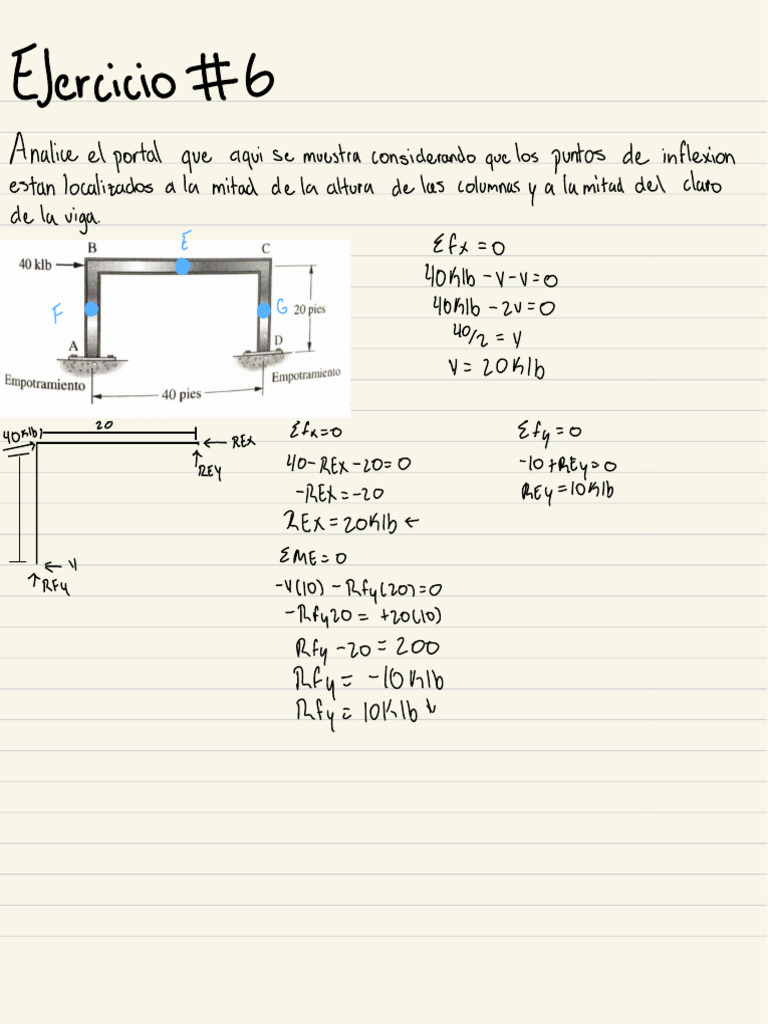 Ejercicio #6
Analice el portal que aqui se muestra considerando que los puntos de inflexion
estan localizados a la mitad de la altura de las columnas y a la mitad del claro
de la viga.
B
E
C
40 klb
F
G
20 pies
A
D
Empotramiento
Empotramiento
40 pies
Σfx = 0
40Klb - V - V = 0
40Klb - 2V = 0
40/2 = V
V = 20Klb
40Klb
20
REX
REY
V
RFY
Σfx=0
40 - REX - 20 = 0
-REX = -20
REX = 20Klb ←
ΣME = 0
-V(10) - Rfy(20) = 0
-Rfy20 = +20(10)
Rfy -20 = 200
Rfy = -10Klb
Rfy = 10Klb ↓
Σfy = 0
-10 + REy = 0
REy = 10Klb